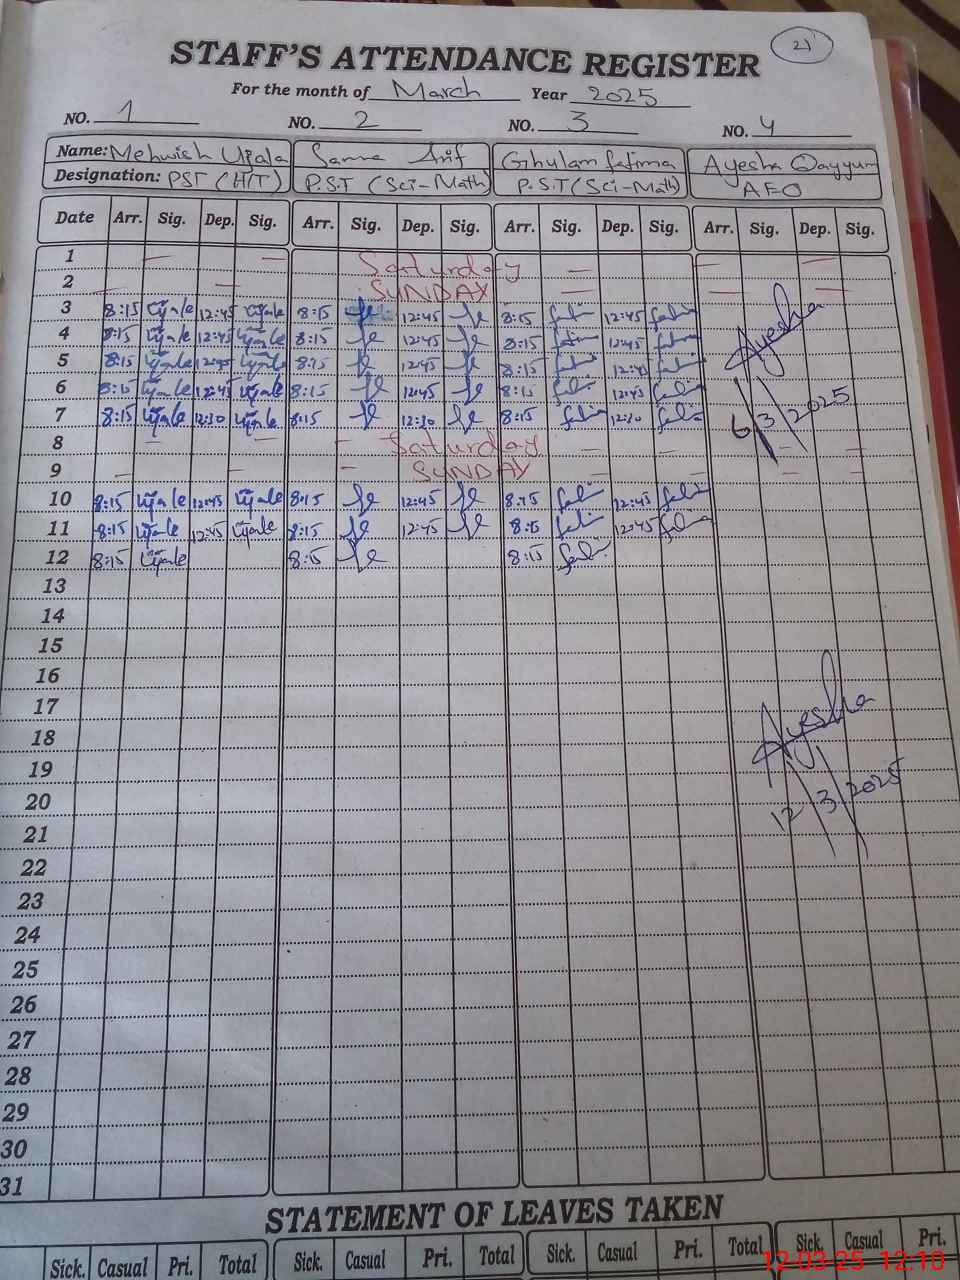 21
STAFF'S ATTENDANCE REGISTER
For the month of March Year 2025
NO. 1 NO. 2 NO. 3 NO. 4
Name: Mehwish Ujala Sanna Arif Ghulam fatima Ayesha Qayyum
Designation: PST (H/T) P.S.T (Sci-Math) P.S.T (Sci-Math) AEO
Date Arr. Sig. Dep. Sig. Arr. Sig. Dep. Sig. Arr. Sig. Dep. Sig. Arr. Sig. Dep. Sig.
1 — — Saturday — — —
2 — — SUNDAY — — —
3 8:15 Ujale 12:45 Ujale 8:15 12:45 8:15 12:45
4 8:15 Ujale 12:45 Ujale 8:15 12:45 8:15 12:45
5 8:15 Ujale 12:45 Ujale 8:15 12:45 8:15 12:45
6 8:15 Ujale 12:45 Ujale 8:15 12:45 8:15 12:45
7 8:15 Ujale 12:30 Ujale 8:15 12:30 8:15 12:30
Ayesha
6/3/2025
8 — — — Saturday — — — —
9 — — — SUNDAY — — — —
10 8:15 Ujale 12:45 Ujale 8:15 12:45 8:15 12:45
11 8:15 Ujale 12:45 Ujale 8:15 12:45 8:15 12:45
12 8:15 Ujale 8:15 8:15
13
14
15
16
17
18
19
20
21
22
23
24
25
26
27
28
29
30
31
Ayesha
12/3/2025
STATEMENT OF LEAVES TAKEN
Sick. Casual Pri. Total Sick. Casual Pri. Total Sick. Casual Pri. Total Sick. Casual Pri.
12-03-25 12:10